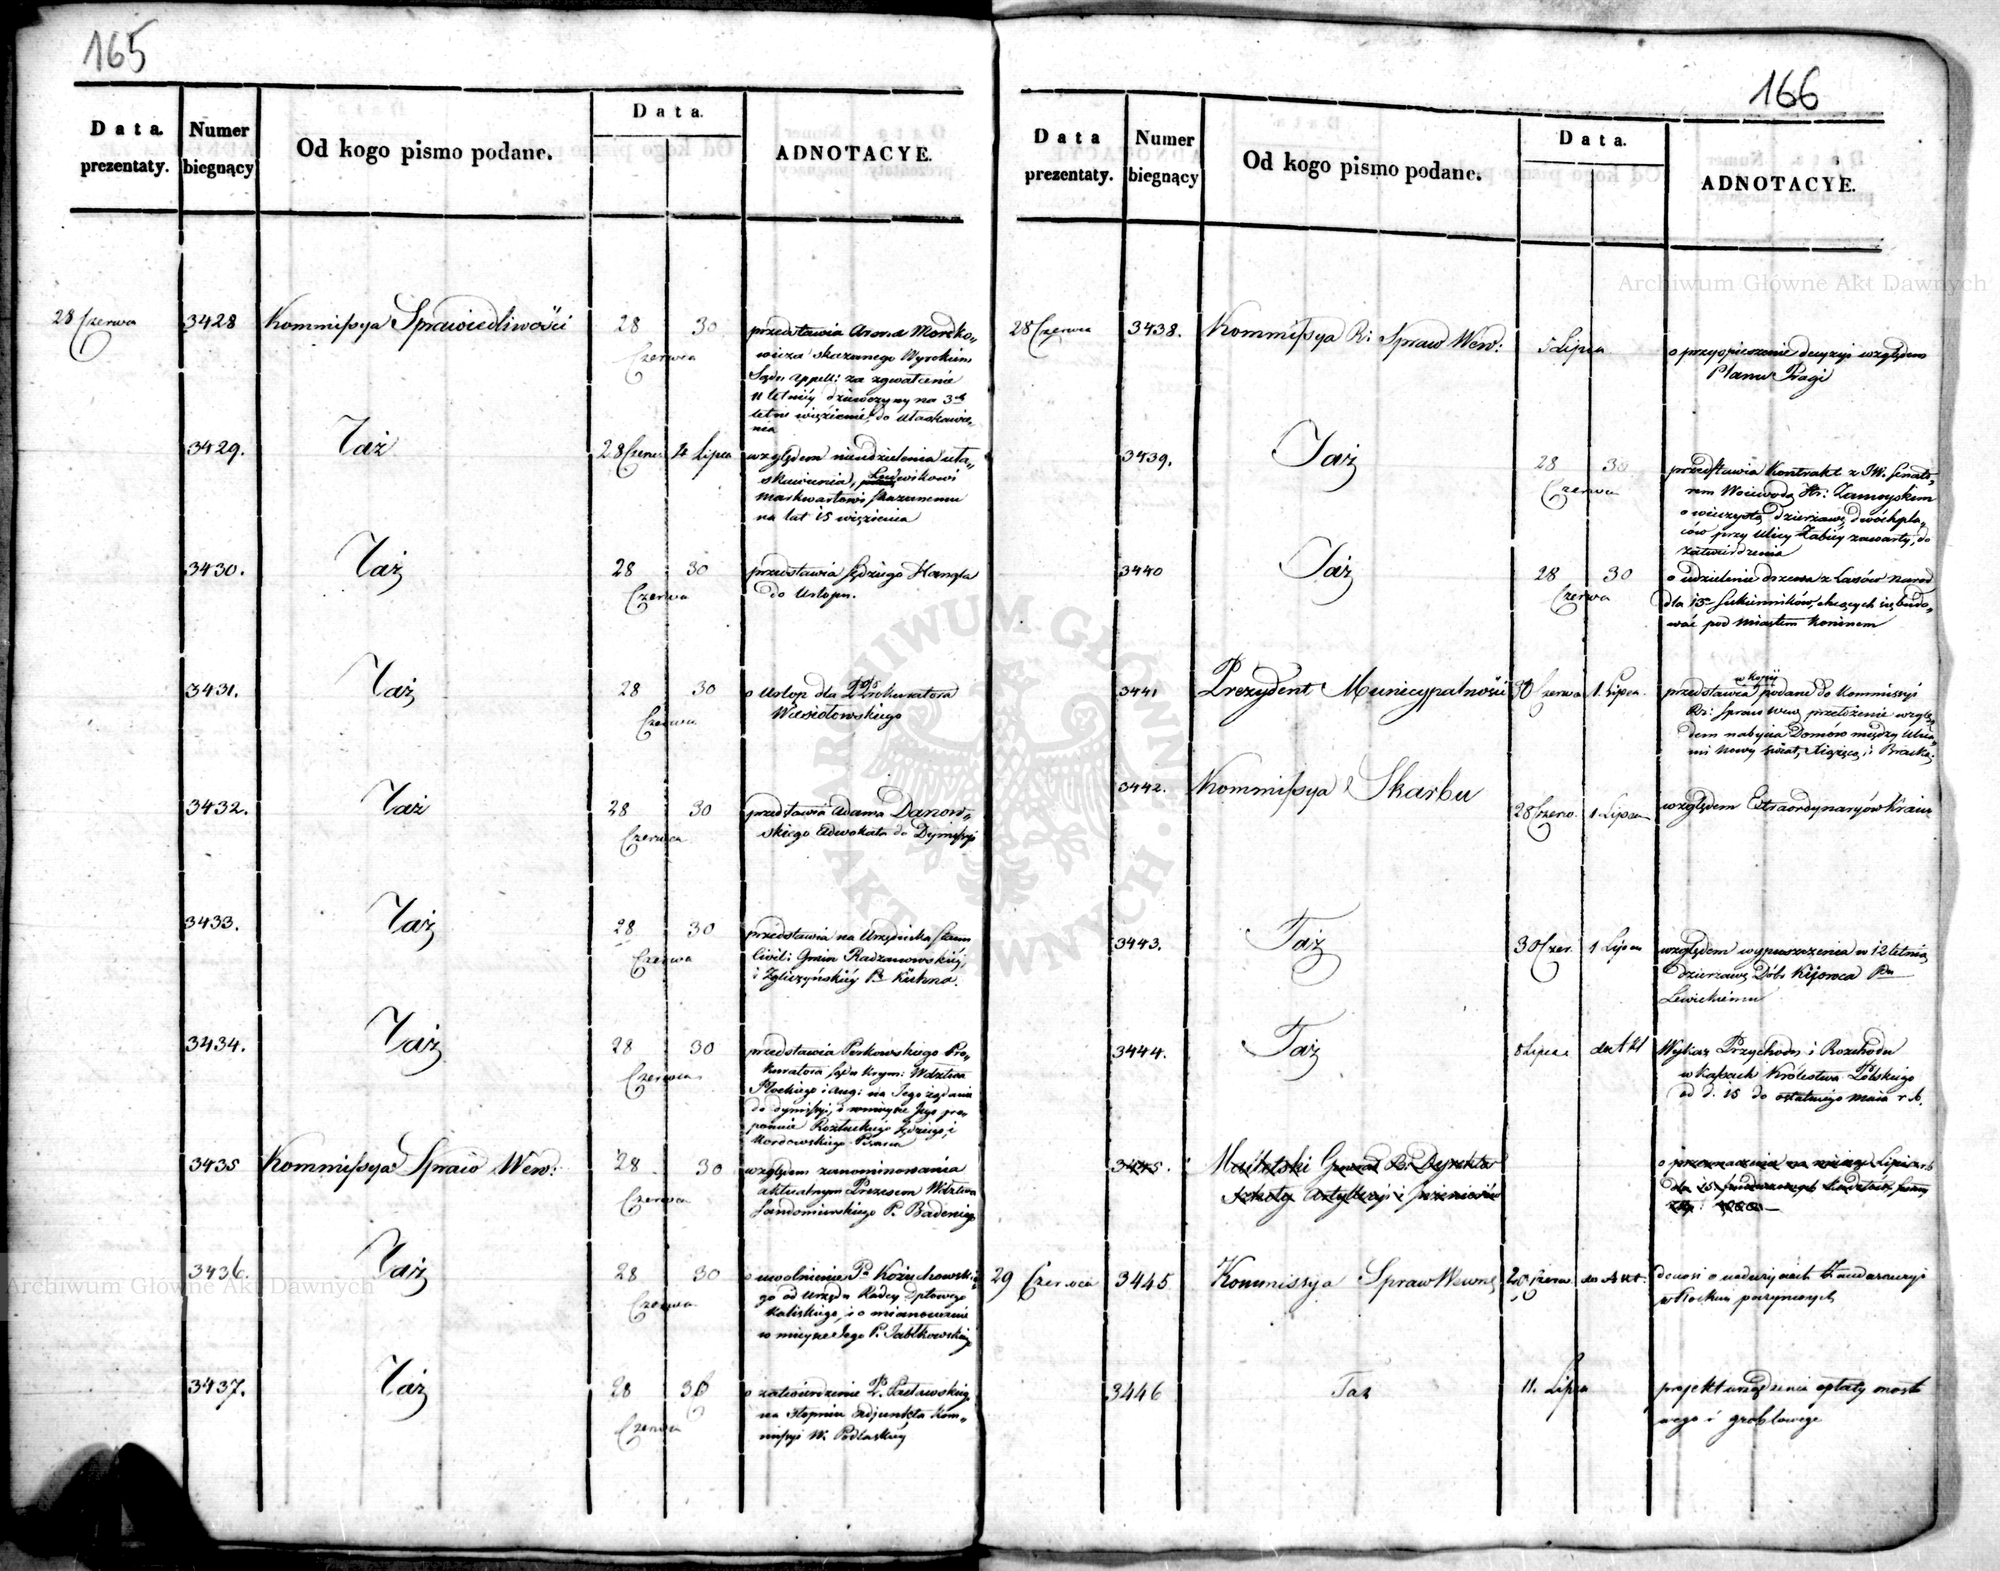 165
Data prezentaty.
Numer biegnący
Od kogo pismo podane.
Data.
ADNOTACYE.
28 Czerwca
3428
Kommissya Sprawiedliwości
28 30
Czerwca
przedstawia Arona Mordko-
wicza skazanego Wyrokiem
Sądu Appell: za zgwałcenie
11 letniey dziewczyny na 3ch
letnie więzienie, do ułaskawie-
nia
3429.
Taż
28 Czerw. 4 Lipca
względem nieudzielenia uła-
skawienia, Ludwikowi
Markwartowi skazanemu
na lat 15 więzienia
3430.
Taż
28 30
Czerwca
przedstawia Sędziego Hangla
do Urlopu.
3431.
Taż
28 30
Czerwca
o Urlop dla Prokuratora
Wiesiołowskiego
3432.
Taż
28 30
Czerwca
przedstawia Adama Danow-
skiego Adwokata do Dymissyi
3433.
Taż
28 30
Czerwca
przedstawia na Urzędnika Stanu
Civil: Gmin Radzanowskiéy
i Zgliczyńskiéy Pa Kühna.
3434.
Taż
28 30
Czerwca
przedstawia Perkowskiego Pro-
kuratora Sądu Krym: Wdztwa
Płockiego i Aug: na Jego żądanie
do dymissyi, i w mieysce Jego pro-
ponuie Roztuckiego Sędziego, i
Kordowskiego Pisarza
3435
Kommissya Spraw Wew:
28 30
Czerwca
względem zanominowania
aktualnym Prezesem Wdztwa
Sandomierskiego P. Badeniego
3436.
Taż
28 30
Czerwca
o uwolnienie Pa Kożuchowskie-
go od Urzędu Radcy Dptowego
Kaliskiego, i o mianowanie
w mieysce Jego P. Jabłkowskiego
3437.
Taż
28 30
Czerwca
o zatwierdzenie P.
na stopniu Adjunkta Kom-
missyi W. Podlaskiéy
166
Data prezentaty.
Numer biegnący
Od kogo pismo podane.
Data.
ADNOTACYE.
28 Czerwca
3438.
Kommissya R: Spraw Wew:
5 Lipca
o przyspieszenie decyzyi względem
Planu Pragi
3439.
Taż
28 30
Czerwca
przedstawia Kontrakt z JW. Senato-
rem Woiewodą Hr: Zamoyskim
o wieczystą dzierżawę dwóch pla-
ców przy Ulicy Żabiey zawarty, do
zatwierdzenia
3440
Taż
28 30
Czerwca
o udzielenie drzewa z Lasów narod
dla 13 Sukienników, chcących się budo-
wać pod miastem Koninem
3441
Prezydent Municypalności
30 Czerwca 1. Lipca.
przedstawia w kopii podane do Kommissyi
R: Spraw Wew. przełożenie wzglę-
dem nabycia Domów między Ulica-
mi Nowy Świat, Xiążęcą, i Bracką.
3442.
Kommissya Skarbu
28 Czerw. 1 Lipca
względem Extraordynaryów
3443.
Taż
30 Czer. 1 Lipca
względem wypuszczenia w 12 letnią
dzierżawę Dóbr Kijowca Pu
Lewickiemu
3444.
Taż
8 Lipca do Akt
Wykaz Przychodu i Rozchodu
w Kassach Królestwa Polskiego
od d. 15 do ostatniego maia r. b.
3445.
Generał
Szkoły Artyleryi i Inżenierów
29 Czerwca
3445
Kommissya Spraw Wewnę
29 Czerw. do Akt.
donosi o nadużyciach
w Płocku
3446
Taż
11. Lipca
projekt urządzenia opłaty mosto
wego i groblowego
Archiwum Główne Akt Dawnych
Archiwum Główne Akt Dawnych
ARCHIWUM GŁÓWNE AKT DAWNYCH